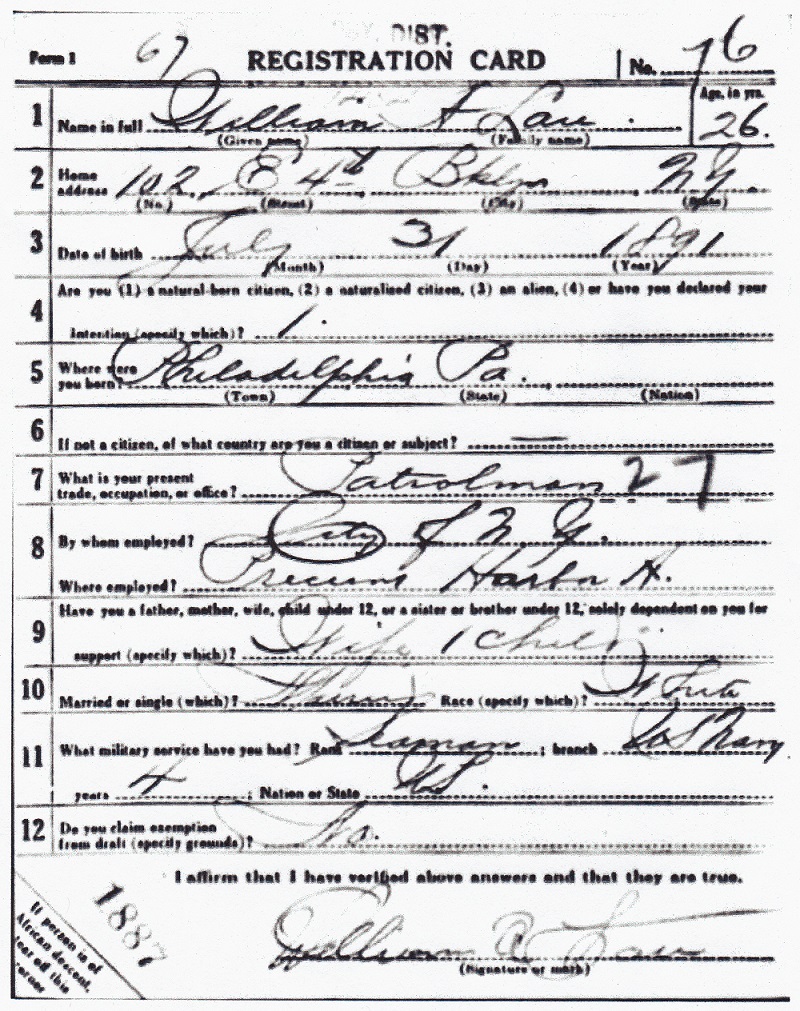 DIST.
Form 1 67 REGISTRATION CARD No. 76
1 Name in full William A Law . Age, in yrs. 26.
(Given name) (Family name)
2 Home address 102 E 4th Bklyn N.Y.
(No.) (Street) (City) (State)
3 Date of birth July 31 1891
(Month) (Day) (Year)
4 Are you (1) a natural-born citizen, (2) a naturalized citizen, (3) an alien, (4) or have you declared your
intention (specify which)? 1.
5 Where were you born? Philadelphia Pa.
(Town) (State) (Nation)
6 If not a citizen, of what country are you a citizen or subject? —
7 What is your present
trade, occupation, or office? Patrolman 27
8 By whom employed? City of N. Y.
Where employed? Harbor A.
9 Have you a father, mother, wife, child under 12, or a sister or brother under 12, solely dependent on you for
support (specify which)? Wife 1 child
10 Married or single (which)? Race (specify which)? White
11 What military service have you had? Rank Seaman ; branch U.S. Navy
years 4 ; Nation or State U.S.
12 Do you claim exemption
from draft (specify grounds)? No.
I affirm that I have verified above answers and that they are true.
1887
If person is of
African descent,
tear off this
corner
William A Law
(Signature or mark)